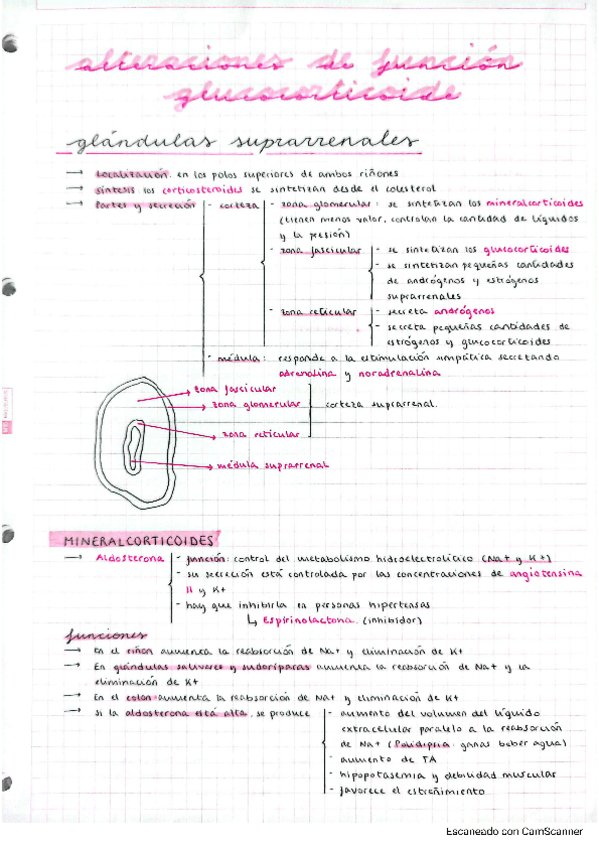 alteraciones de función
glucocorticoide
glándulas suprarrenales
→ Localización: en los polos superiores de ambos riñones
→ Síntesis: los corticosteroides se sintetizan desde el colesterol
→ Partes y secreción - corteza - zona glomerular: se sintetizan los mineralcorticoides
(tienen menos valor, controlan la cantidad de líquidos
y la presión)
- zona fascicular - se sintetizan los glucocorticoides
- se sintetizan pequeñas cantidades
de andrógenos y estrógenos
suprarrenales
- zona reticular - secreta andrógenos
- secreta pequeñas cantidades de
estrógenos y glucocorticoides
- médula: responde a la estimulación simpática secretando
adrenalina y noradrenalina
→ zona fascicular
→ zona glomerular
corteza suprarrenal
→ zona reticular
→ médula suprarrenal
MINERALCORTICOIDES
→ Aldosterona - función: control del metabolismo hidroelectrolítico (Na+ y K+)
- su secreción está controlada por las concentraciones de angiotensina
II y K+
- hay que inhibirla en personas hipertensas
↳ Espirinolactona (inhibidor)
funciones
→ En el riñón aumenta la reabsorción de Na+ y eliminación de K+
→ En glándulas salivares y sudoríparas aumenta la reabsorción de Na+ y la
eliminación de K+
→ En el colon aumenta la reabsorción de Na+ y eliminación de K+
→ Si la aldosterona está alta, se produce - aumento del volumen del líquido
extracelular paralelo a la reabsorción
de Na+ (Polidipsia: ganas beber agua)
- aumento de TA
- hipopotasemia y debilidad muscular
- favorece el estreñimiento
Escaneado con CamScanner